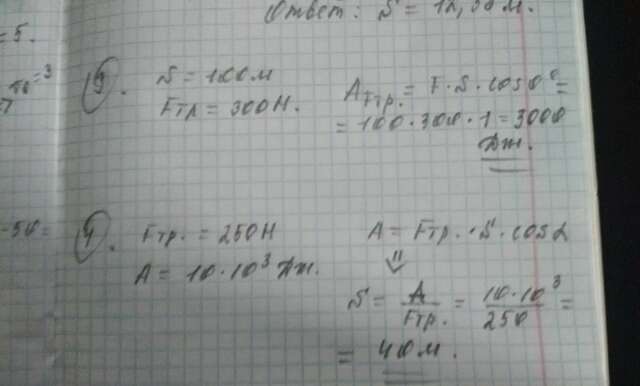 Ответ: S = 12,50 м.
= 5.
3. S = 100 м
Fтр = 300 Н.
AFтр. = F · S · cos 0° =
= 100 · 300 · 1 = 3000
Дж.
-50 =
4. Fтр. = 250 Н
A = 10 · 10³ Дж.
A = Fтр. · S · cos α
⇓
S = A / Fтр. = 10 · 10³ / 250 =
= 40 м.